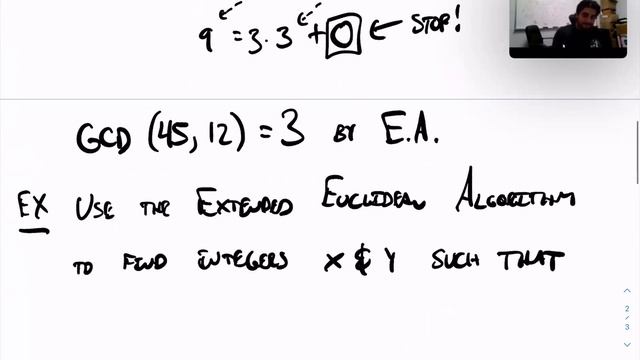 9 = 3·3 + 0 ← STOP!
GCD (45, 12) = 3 BY E.A.
EX USE THE EXTENDED EUCLIDEAN ALGORITHM
TO FIND INTEGERS X & Y SUCH THAT
2
/
3